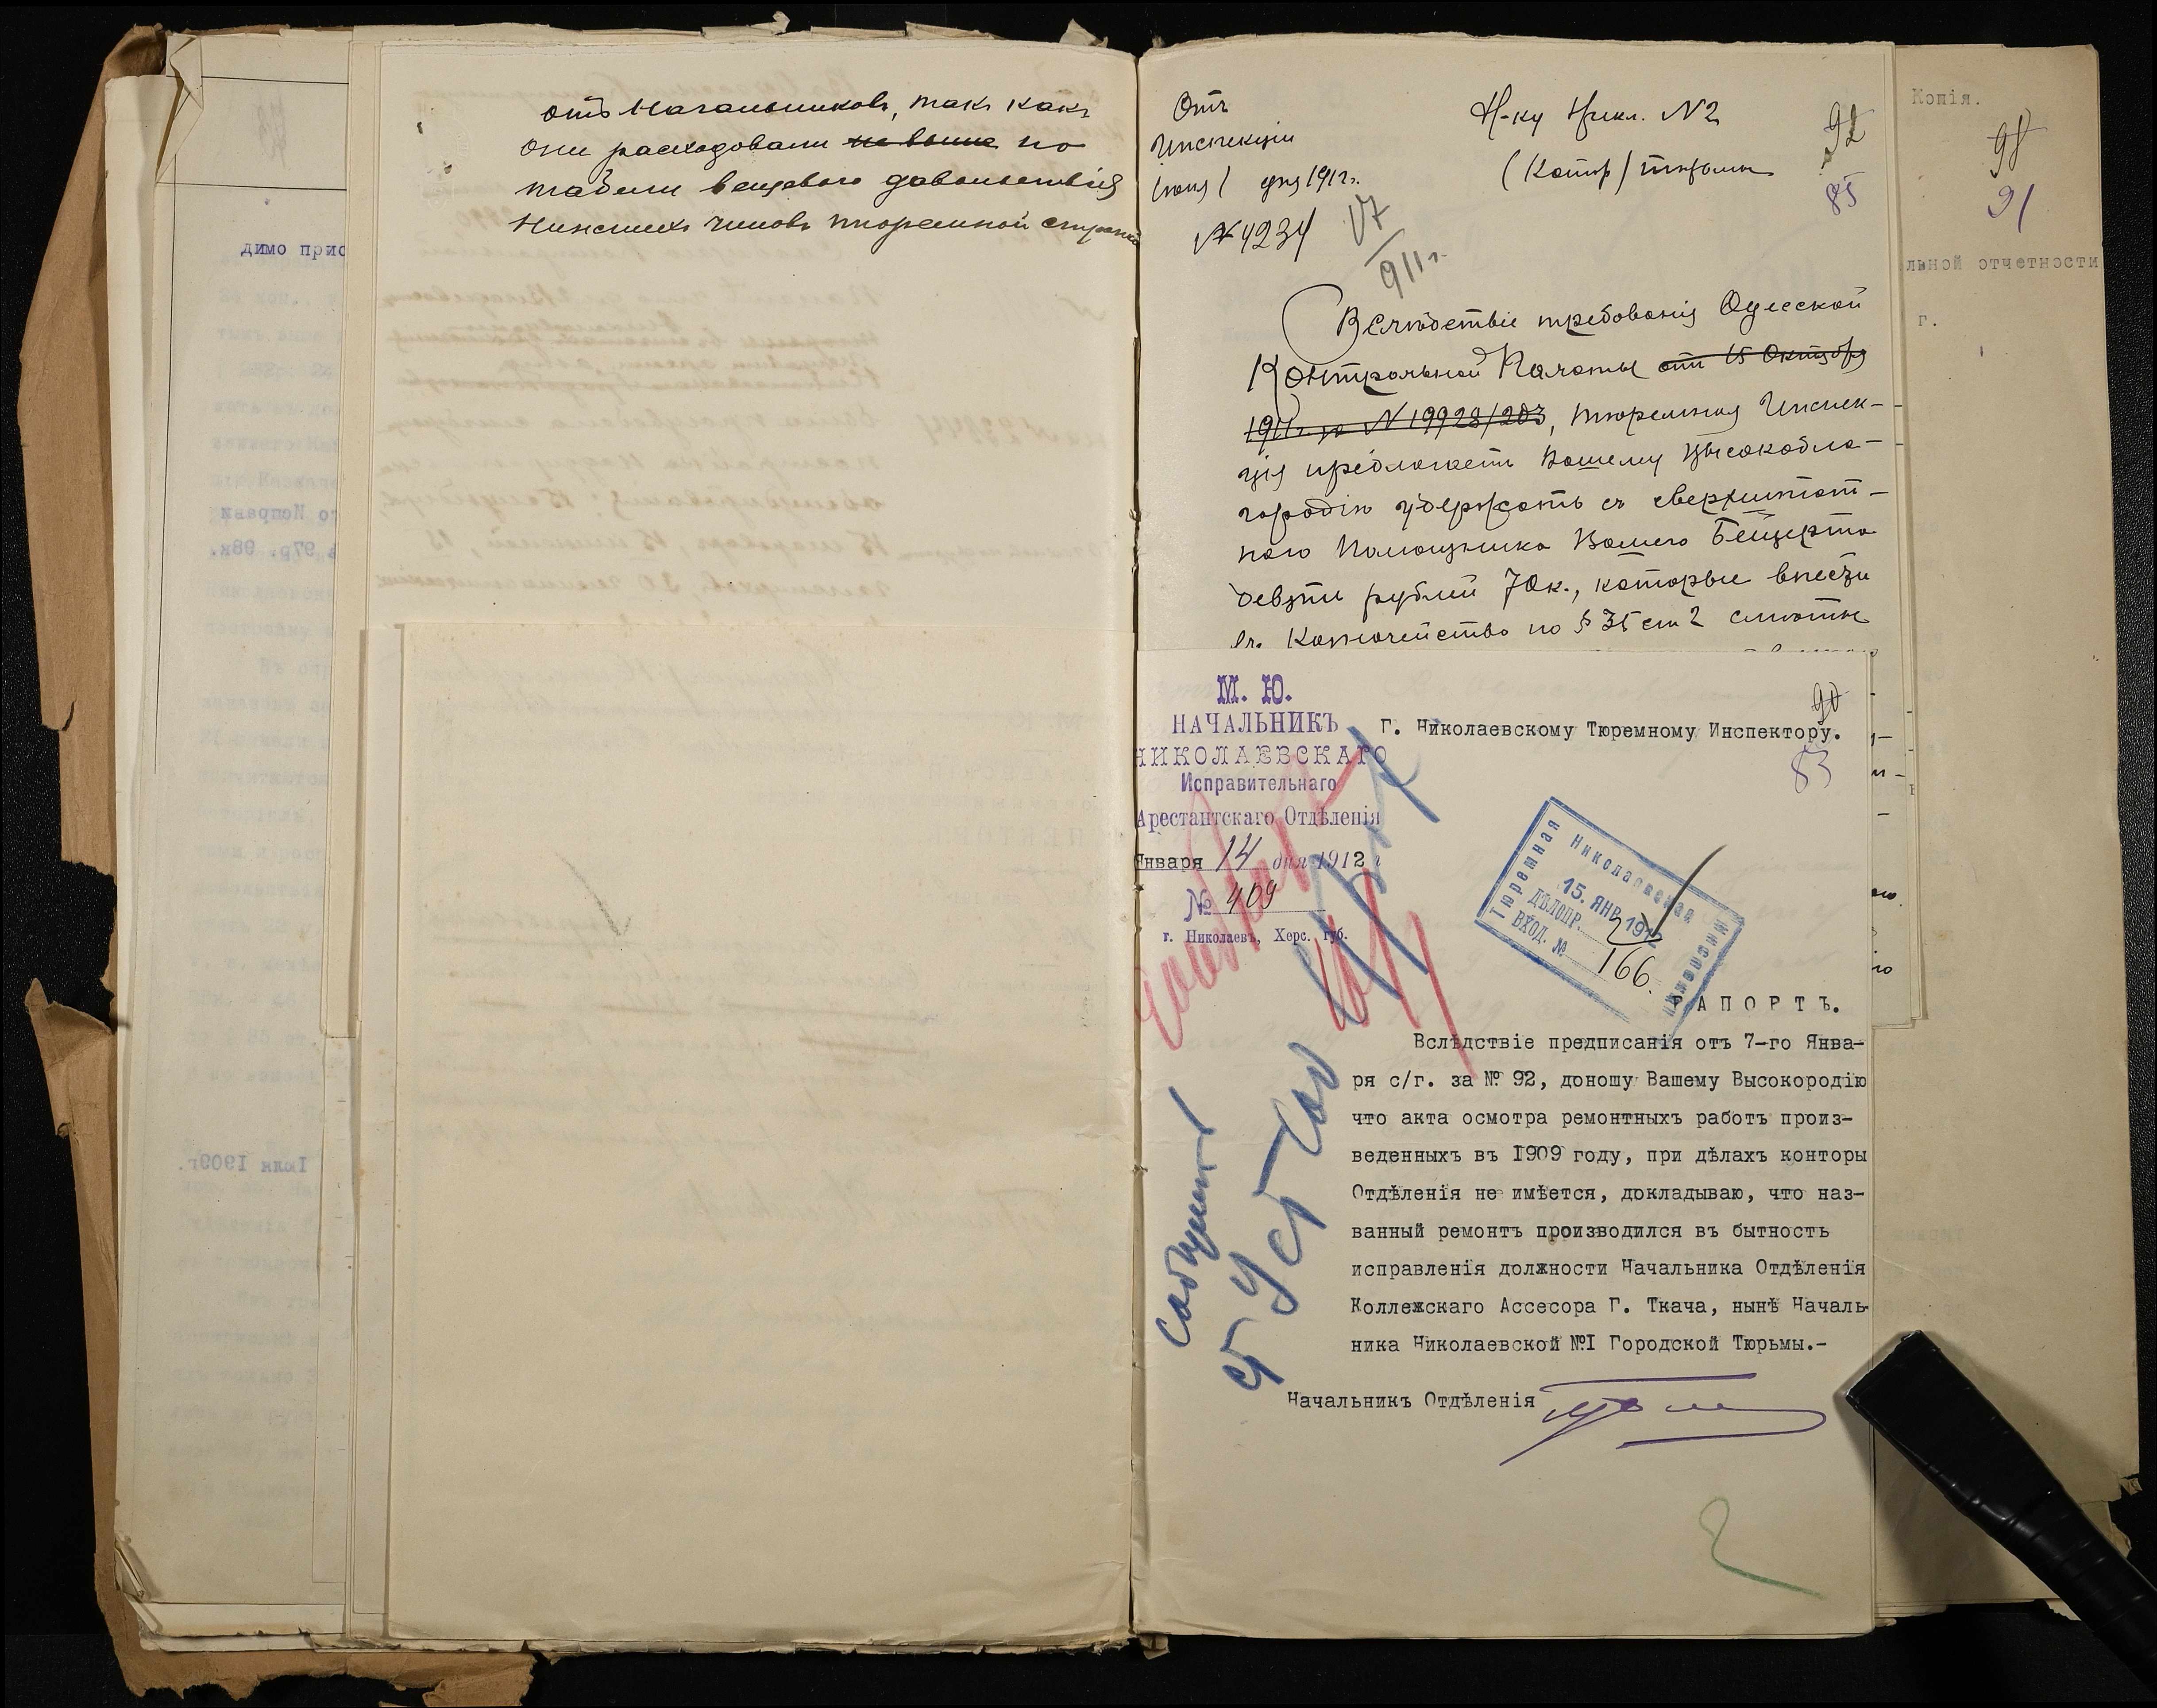 отъ Начальниковъ, такъ какъ
они расходовали не выше по
табели вещевого довольствія
Нижнихъ чиновъ тюремной стражи
димо прис
Іюля 1909г.
Отъ
Инспекціи
Іюня 1 дня 1912г.
№ 4234
17/911г.
Н-ку Никл. № 2
(Катор) тюрьмы
92
85
Вслѣдствіе требованія Одесской
Контрольной Палаты отъ 15 Октября
1911г. за № 19928/203, тюремная Инспек-
ція предлагаетъ Вашему Высокобла-
городію удержать съ сверхштат-
наго Помощника Вашего
девять рублей 70к., которые внести
въ Казначейство по § 35 ст 2 смѣты
Копія.
98
91
льной отчетности
г.
М. Ю.
НАЧАЛЬНИКЪ
НИКОЛАЕВСКАГО
Исправительнаго
Арестантскаго Отдѣленія
Января 14 дня 1912 г
№ 409
г. Николаевъ, Херс. губ.
90
83
Г. Николаевскому Тюремному Инспектору.
Николаевская
Тюремная
Инспекція
15. ЯНВ 1912
ДѢЛОПР. 2
ВХОД. № 166.
РАПОРТЪ.
Вслѣдствіе предписанія отъ 7-го Янва-
ря с/г. за № 92, доношу Вашему Высокородію
что акта осмотра ремонтныхъ работъ произ-
веденныхъ въ 1909 году, при дѣлахъ конторы
Отдѣленія не имѣется, докладываю, что наз-
ванный ремонтъ производился въ бытность
исправленія должности Начальника Отдѣленія
Коллежскаго Ассесора Г. Ткача, нынѣ Началь-
ника Николаевской №I Городской Тюрьмы.-
Начальникъ Отдѣленія
Сообщить